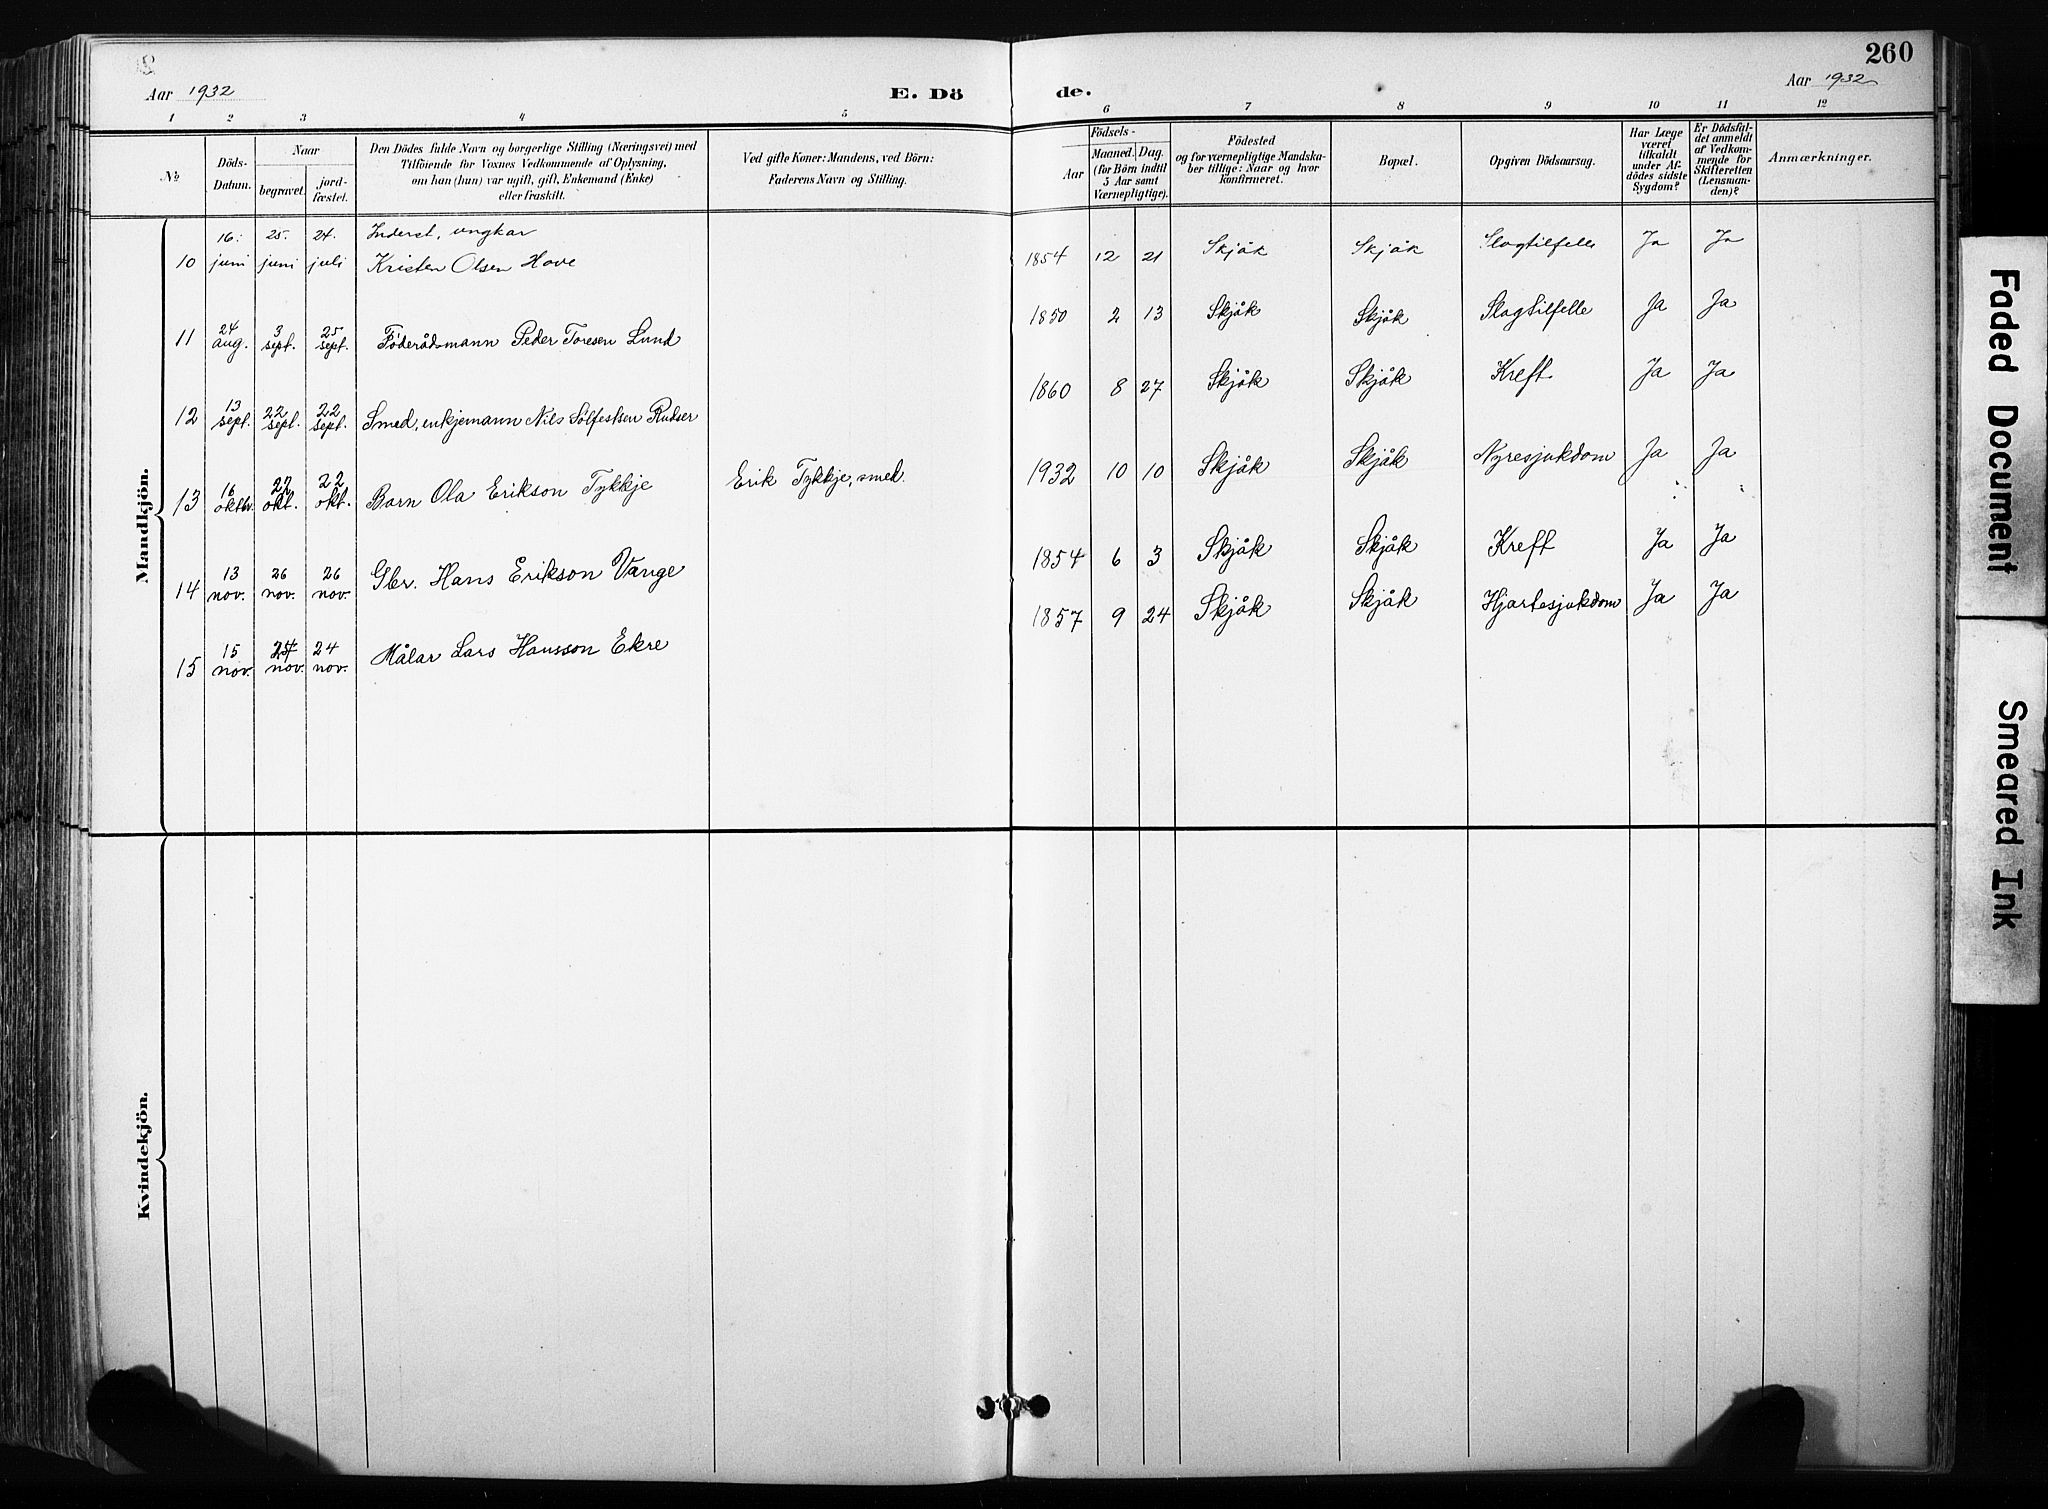 260
Aar 1932
E. Dö
de.
Aar 1932
1 2 3 4 5 6 7 8 9 10 11 12
No
Döds-
Datum.
Naar
begravet.
jord-
fæstet.
Den Dödes fulde Navn og borgerlige Stilling (Næringsvei) med
Tilföiende for Voxnes Vedkommende af Oplysning,
om han (hun) var ugift, gift, Enkemand (Enke)
eller fraskilt.
Ved gifte Koner: Mandens, ved Börn:
Faderens Navn og Stilling.
Födsels-
Aar
Maaned. Dag.
(for Börn indtil
5 Aar samt
Værnepligtige).
Födested
og for værnepligtige Mandska-
ber tillige: Naar og hvor
konfirmeret.
Bopæl.
Opgiven Dödsaarsag.
Har Læge
været
tilkaldt
under Af-
dödes sidste
Sygdom?
Er Dödsfal-
det anmeldt
af Vedkom-
mende for
Skifteretten
(Lensman-
den)?
Anmærkninger.
Mandkjön.
10 16. juni 25. juni 24. juli Inderst, ungkar
Kristen Olsen Hove 1854 12 21 Skjåk Skjåk Slagtilfelle Ja Ja
11 24 aug. 3 sept. 25 sept. Føderådsmann Peder Toresen Lund 1850 2 13 Skjåk Skjåk Slagtilfelle Ja Ja
12 13 sept. 22 sept. 22 sept. Smed, enkjemann Nils Sølfestsen 1860 8 27 Skjåk Skjåk Kreft Ja Ja
13 16 oktbr. 22 okt. 22 okt. Barn Ola Erikson Tykkje Erik Tykkje, smed. 1932 10 10 Skjåk Skjåk Nyresjukdom Ja Ja
14 13 nov. 26 nov. 26 nov. Gbr. Hans Erikson Vange 1854 6 3 Skjåk Skjåk Kreft Ja Ja
15 15 nov. 24 nov. 24 nov. Målar Lars Hansson Ekre 1857 9 24 Skjåk Skjåk Hjartesjukdom Ja Ja
Kvindekjön.
Faded Document
Smeared Ink